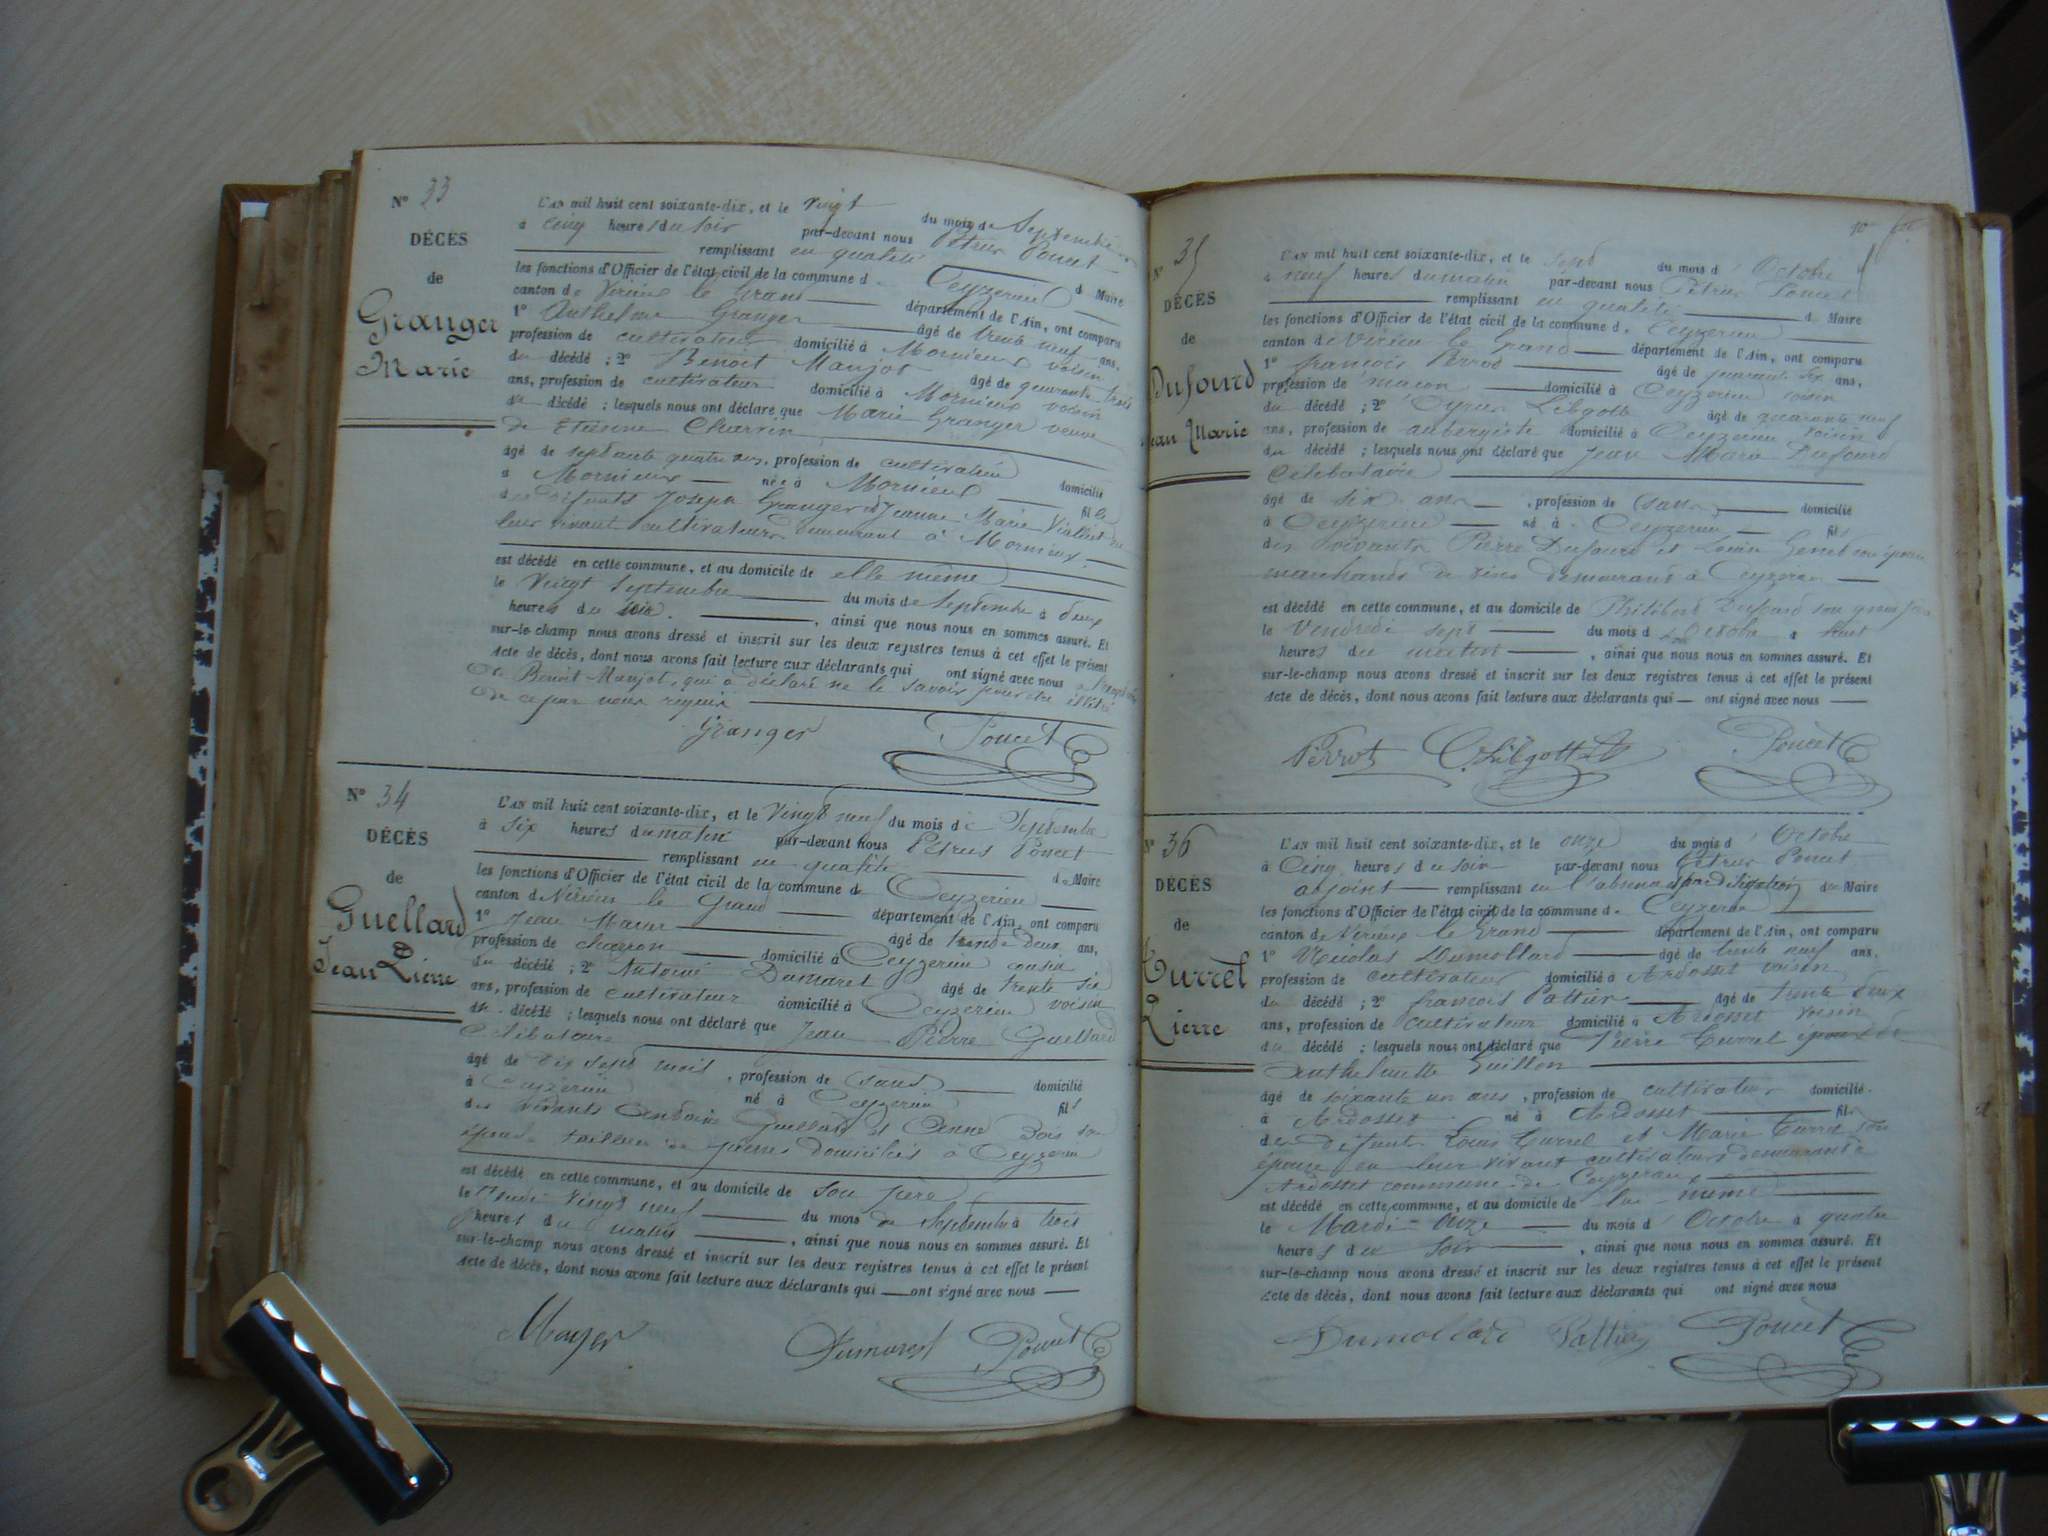 N° 33
DÉCÈS
de
Granger
Marie
L'AN mil huit cent soixante-dix, et le vingt du mois de Septembre
à cinq heures du soir par-devant nous Pétrus Poncet
remplissant en qualité d Maire
les fonctions d'Officier de l'état civil de la commune d Ceyzerieu
canton de Virieu le Grand département de l'Ain, ont comparu
1° Anthelme Granger âgé de trente neuf ans,
profession de cultivateur domicilié à Mornieux voisin
du décédé ; 2° Benoit Maujot âgé de quarante trois
ans, profession de cultivateur domicilié à Mornieux voisin
du décédé ; lesquels nous ont déclaré que Marie Granger veuve
de Etienne Charvin
âgé de septante quatre ans, profession de cultivateur domicilié
à Mornieux née à Mornieux fille
des défunts Joseph Granger et Jeanne Marie
leur vivant cultivateurs demeurant à Mornieux
est décédé en cette commune, et au domicile de elle même
le vingt septembre du mois de septembre à deux
heures du soir, ainsi que nous nous en sommes assuré. Et
sur-le-champ nous avons dressé et inscrit sur les deux registres tenus à cet effet le présent
Acte de décès, dont nous avons fait lecture aux déclarants qui ont signé avec nous
de Benoit Maujot, qui a déclaré ne le savoir pour être illétré
de ce par nous requis
Granger Poncet
N° 34
DÉCÈS
de
Guellard
Jean Pierre
L'AN mil huit cent soixante-dix, et le vingt neuf du mois de Septembre
à six heures du matin par-devant nous Pétrus Poncet
remplissant en qualité de Maire
les fonctions d'Officier de l'état civil de la commune d Ceyzerieu
canton d Virieu le Grand département de l'Ain, ont comparu
1° Jean Mayer âgé de trente deux ans,
profession de charron domicilié à Ceyzerieu cousin
du décédé ; 2° Antoine Dumarest âgé de trente six
ans, profession de cultivateur domicilié à Ceyzerieu voisin
du décédé ; lesquels nous ont déclaré que Jean Pierre Guellard
Célibataire
âgé de dix sept mois, profession de (sans) domicilié
à Ceyzerieu né à Ceyzerieu fils
des vivants Antoine Guellard et Anne Bois son
épouse tailleur de pierres domiciliés à Ceyzerieu
est décédé en cette commune, et au domicile de son père
le jeudi vingt neuf du mois de septembre à trois
heures du matin, ainsi que nous nous en sommes assuré. Et
sur-le-champ nous avons dressé et inscrit sur les deux registres tenus à cet effet le présent
Acte de décès, dont nous avons fait lecture aux déclarants qui ont signé avec nous
Mayer Dumarest Poncet
N° 35
DÉCÈS
de
Dufourd
Jean Marie
L'AN mil huit cent soixante-dix, et le sept du mois d'Octobre
à neuf heures du matin par-devant nous Pétrus Poncet
remplissant en qualité d Maire
les fonctions d'Officier de l'état civil de la commune d Ceyzerieu
canton de Virieu le Grand département de l'Ain, ont comparu
1° françois Perrot âgé de quarante six ans,
profession de maçon domicilié à Ceyzerieu voisin
du décédé ; 2° Cyrus Libgott âgé de quarante neuf
ans, profession de aubergiste domicilié à Ceyzerieu voisin
du décédé ; lesquels nous ont déclaré que Jean Marie Dufourd
Célibataire
âgé de six ans, profession de (sans) domicilié
à Ceyzerieu né à Ceyzerieu fils
des vivants Pierre Dufourd et Louise Genet son épouse
marchands de vins demeurant à Ceyzerieu
est décédé en cette commune, et au domicile de Philibert Dufourd son grand père
le Vendredi sept du mois d'Octobre à huit
heures du matin, ainsi que nous nous en sommes assuré. Et
sur-le-champ nous avons dressé et inscrit sur les deux registres tenus à cet effet le présent
Acte de décès, dont nous avons fait lecture aux déclarants qui ont signé avec nous
Perrot C. Libgott Poncet
N° 36
DÉCÈS
de
Curvel
Pierre
L'AN mil huit cent soixante-dix, et le onze du mois d'Octobre
à Cinq heures du soir par-devant nous Pétrus Poncet
adjoint remplissant en l'absence et par délégation du Maire
les fonctions d'Officier de l'état civil de la commune d Ceyzerieu
canton de Virieux le Grand département de l'Ain, ont comparu
1° Nicolas Dumollard âgé de trente neuf ans,
profession de cultivateur domicilié à Ardosset voisin
du décédé ; 2° françois Pattier âgé de trente deux
ans, profession de cultivateur domicilié à Ardosset voisin
du décédé ; lesquels nous ont déclaré que Pierre Curvel époux de
Anthelmette Guillon
âgé de soixante un ans, profession de cultivateur domicilié
à Ardosset né à Ardosset fils
des défunts Louis Curvel et Marie Curvel son
épouse en leur vivant cultivateurs demeurant à
Ardosset commune de Ceyzerieu
est décédé en cette commune, et au domicile de lui même
le Mardi onze du mois d'Octobre à quatre
heures du soir, ainsi que nous nous en sommes assuré. Et
sur-le-champ nous avons dressé et inscrit sur les deux registres tenus à cet effet le présent
Acte de décès, dont nous avons fait lecture aux déclarants qui ont signé avec nous
Dumollard Pattier Poncet